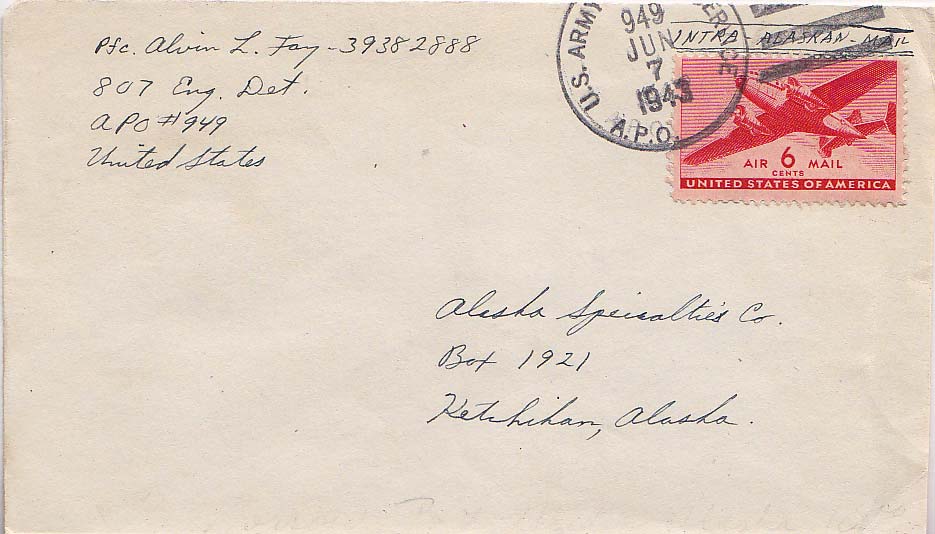 Pfc. Alvin L. Fay - 39382888
807 Eng. Det.
APO #949
United States
U.S. ARMY
949
JUN
7
1943
A.P.O.
INTRA-ALASKAN-MAIL
AIR 6 MAIL
CENTS
UNITED STATES OF AMERICA
Alaska Speialties Co.
Box 1921
Ketchikan, Alaska.